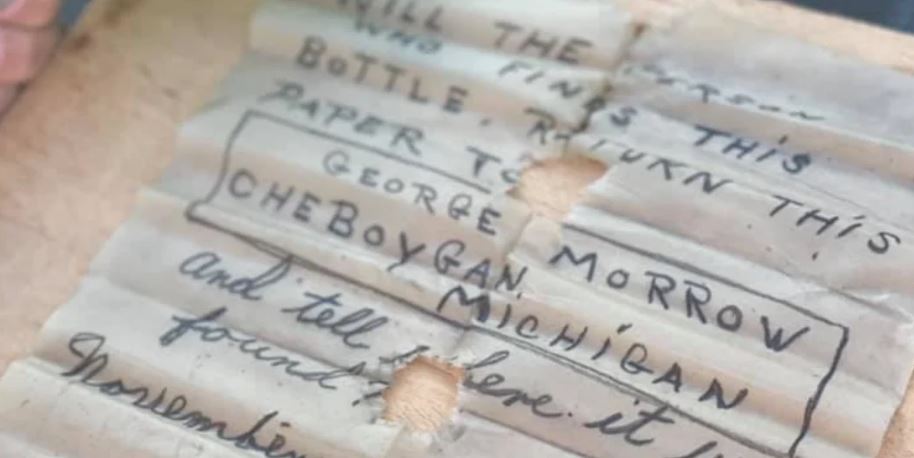 WILL THE PERSON
WHO FINDS THIS
BOTTLE, RETURN THIS
PAPER TO
GEORGE MORROW
CHEBOYGAN,
MICHIGAN
and tell where it
found?
November